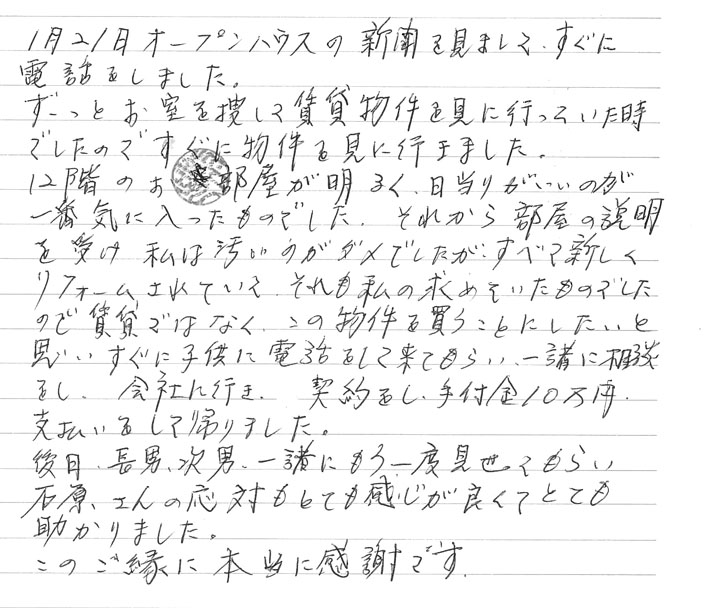 1月21日オープンハウスの新聞を見まして、すぐに
電話をしました。
ずーっとお室を捜して賃貸物件を見に行っていた時
でしたのですぐに物件を見に行きました。
12階のお部屋が明るく、日当りがいいのが
一番気に入ったものでした。それから部屋の説明
を受け私は汚いのがダメでしたが、すべて新しく
リフォームされていて、それも私の求めていたものでした
ので賃貸ではなく、この物件を買うことにしたいと
思いすぐに子供に電話をして来てもらい、一諸に相談
をし、会社に行き、契約をし、手付金10万円、
支払いをして帰りました。
後日、長男、次男、一諸にもう一度見せてもらい
石原さんの応対もとても感じが良くてとても
助かりました。
このご縁に本当に感謝です。